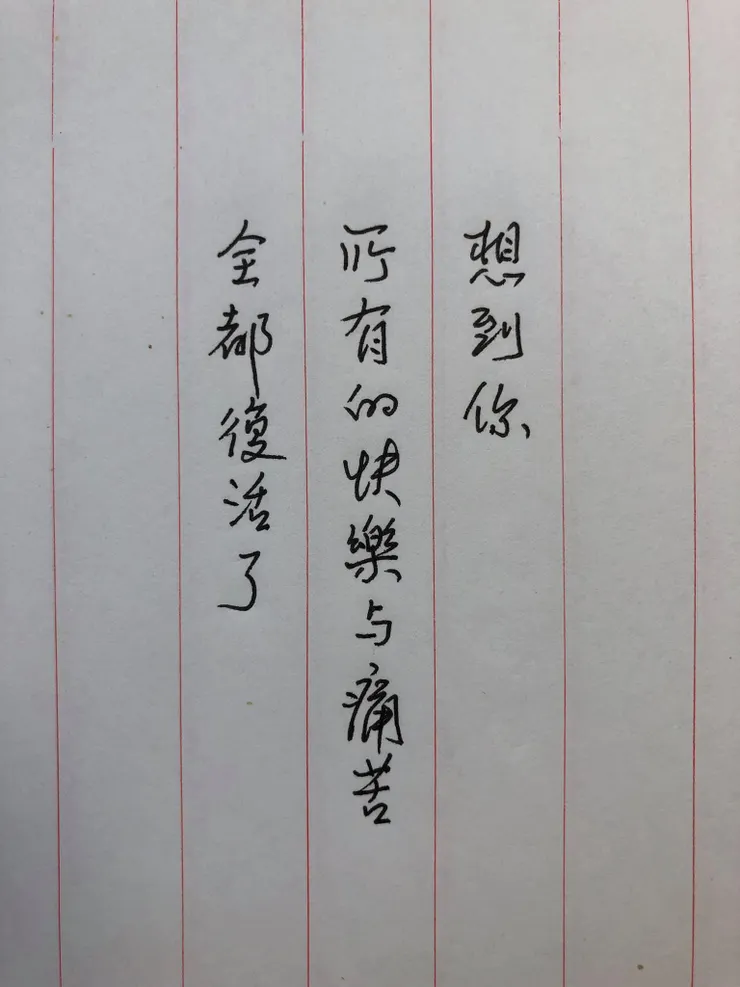 想到你
所有的快樂与痛苦
全都復活了